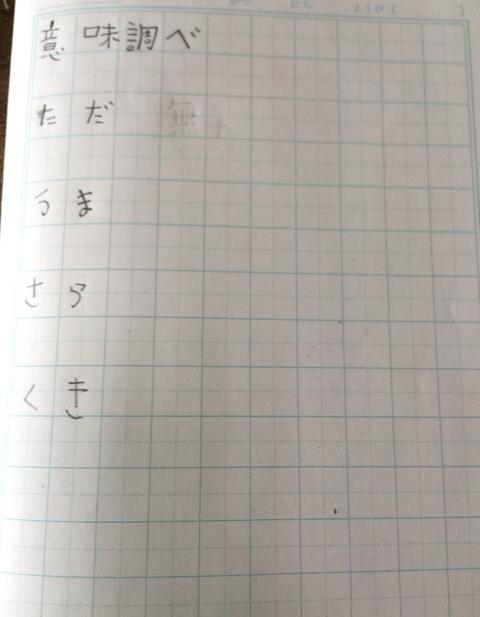 意味調べ
ただ 無
うま
さら
くき